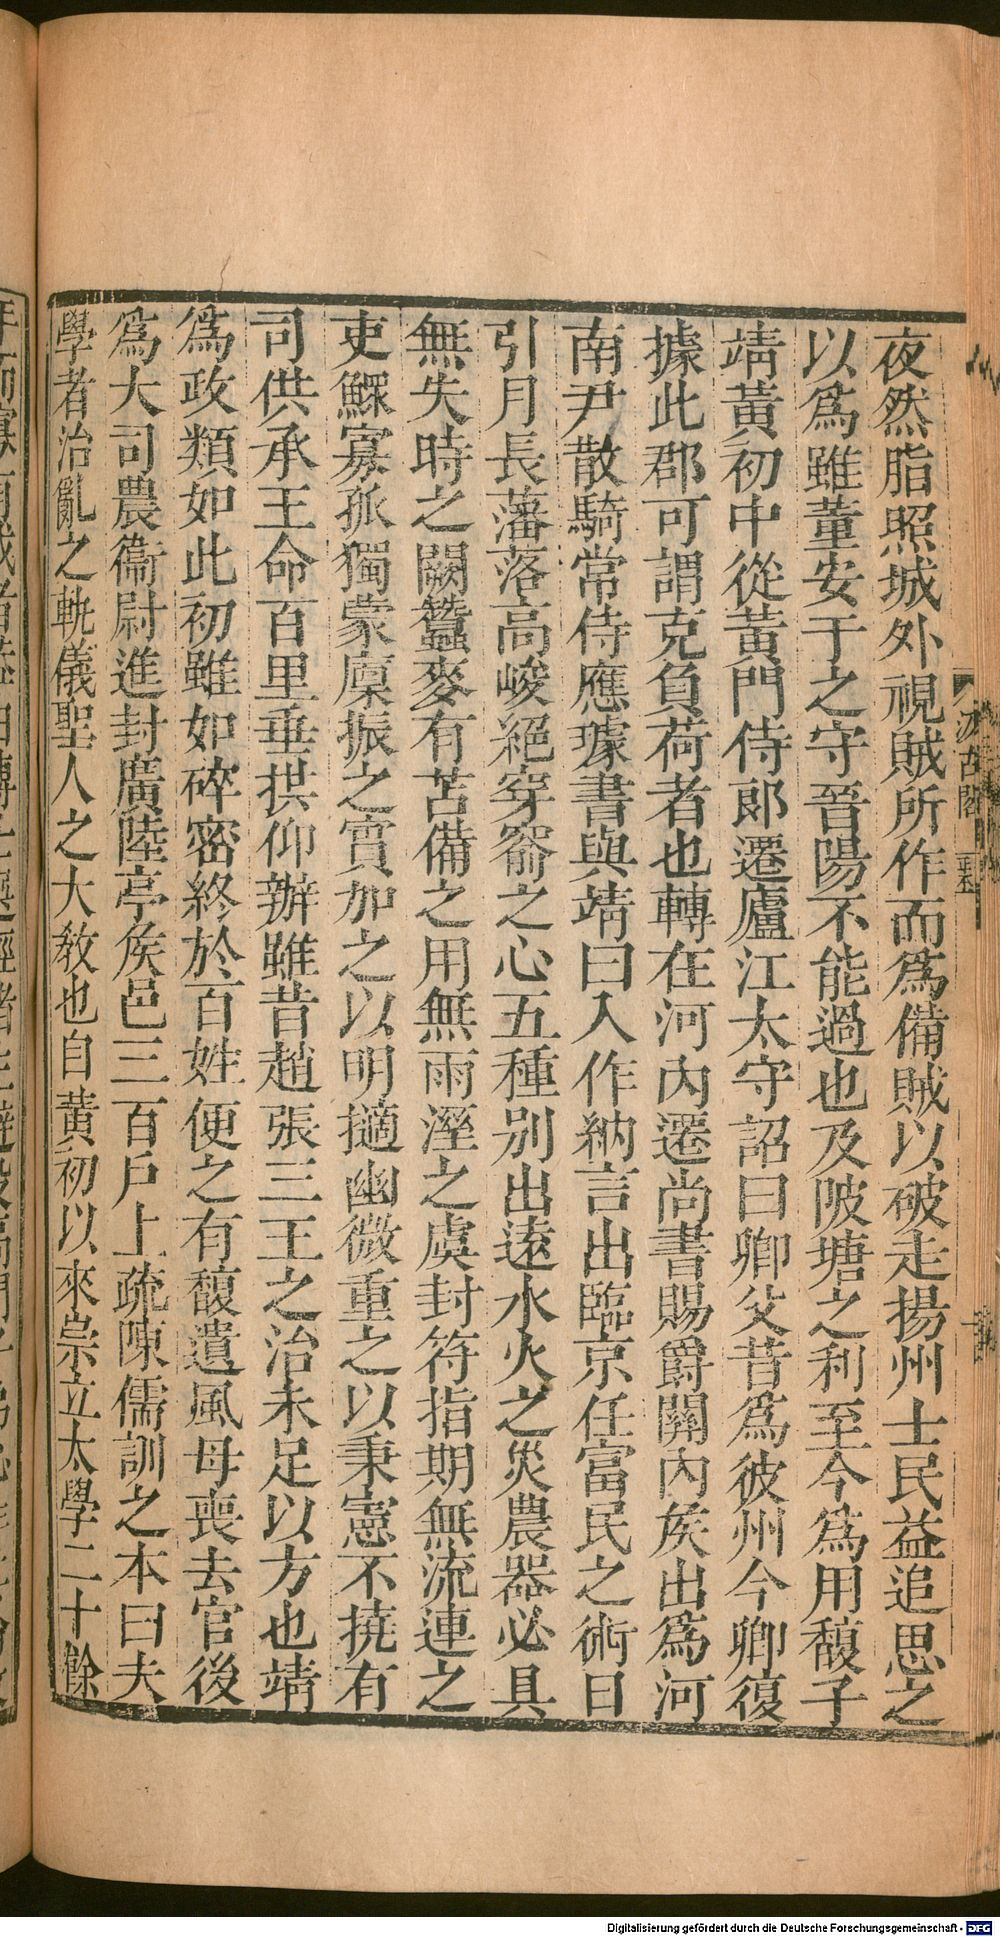 夜然脂照城外視賊所作而爲備賊以破走揚州士民益追思之
以爲雖董安于之守晉陽不能過也及陂塘之利至今爲用馥子
靖黃初中從黃門侍郎遷廬江太守詔曰卿父昔爲彼州今卿復
據此郡可謂克負荷者也轉在河內遷尚書賜爵關內侯出爲河
南尹散騎常侍應璩書與靖曰入作納言出臨京任富民之術日
引月長藩落高峻絕穿窬之心五種別出遠水火之災農器必具
無失時之闕蠶麥有苫備之用無雨溼之虞封符指期無流連之
吏鰥寡孤獨蒙廩振之實加之以明擿幽微重之以秉憲不撓有
司供承王命百里垂拱仰辦雖昔趙張三王之治未足以方也靖
爲政類如此初雖如碎密終於百姓便之有馥遺風母喪去官後
爲大司農衞尉進封廣陸亭侯邑三百戶上疏陳儒訓之本曰夫
學者治亂之軌儀聖人之大教也自黃初以來崇立太學二十餘
汲古閣
Digitalisierung gefördert durch die Deutsche Forschungsgemeinschaft - DFG